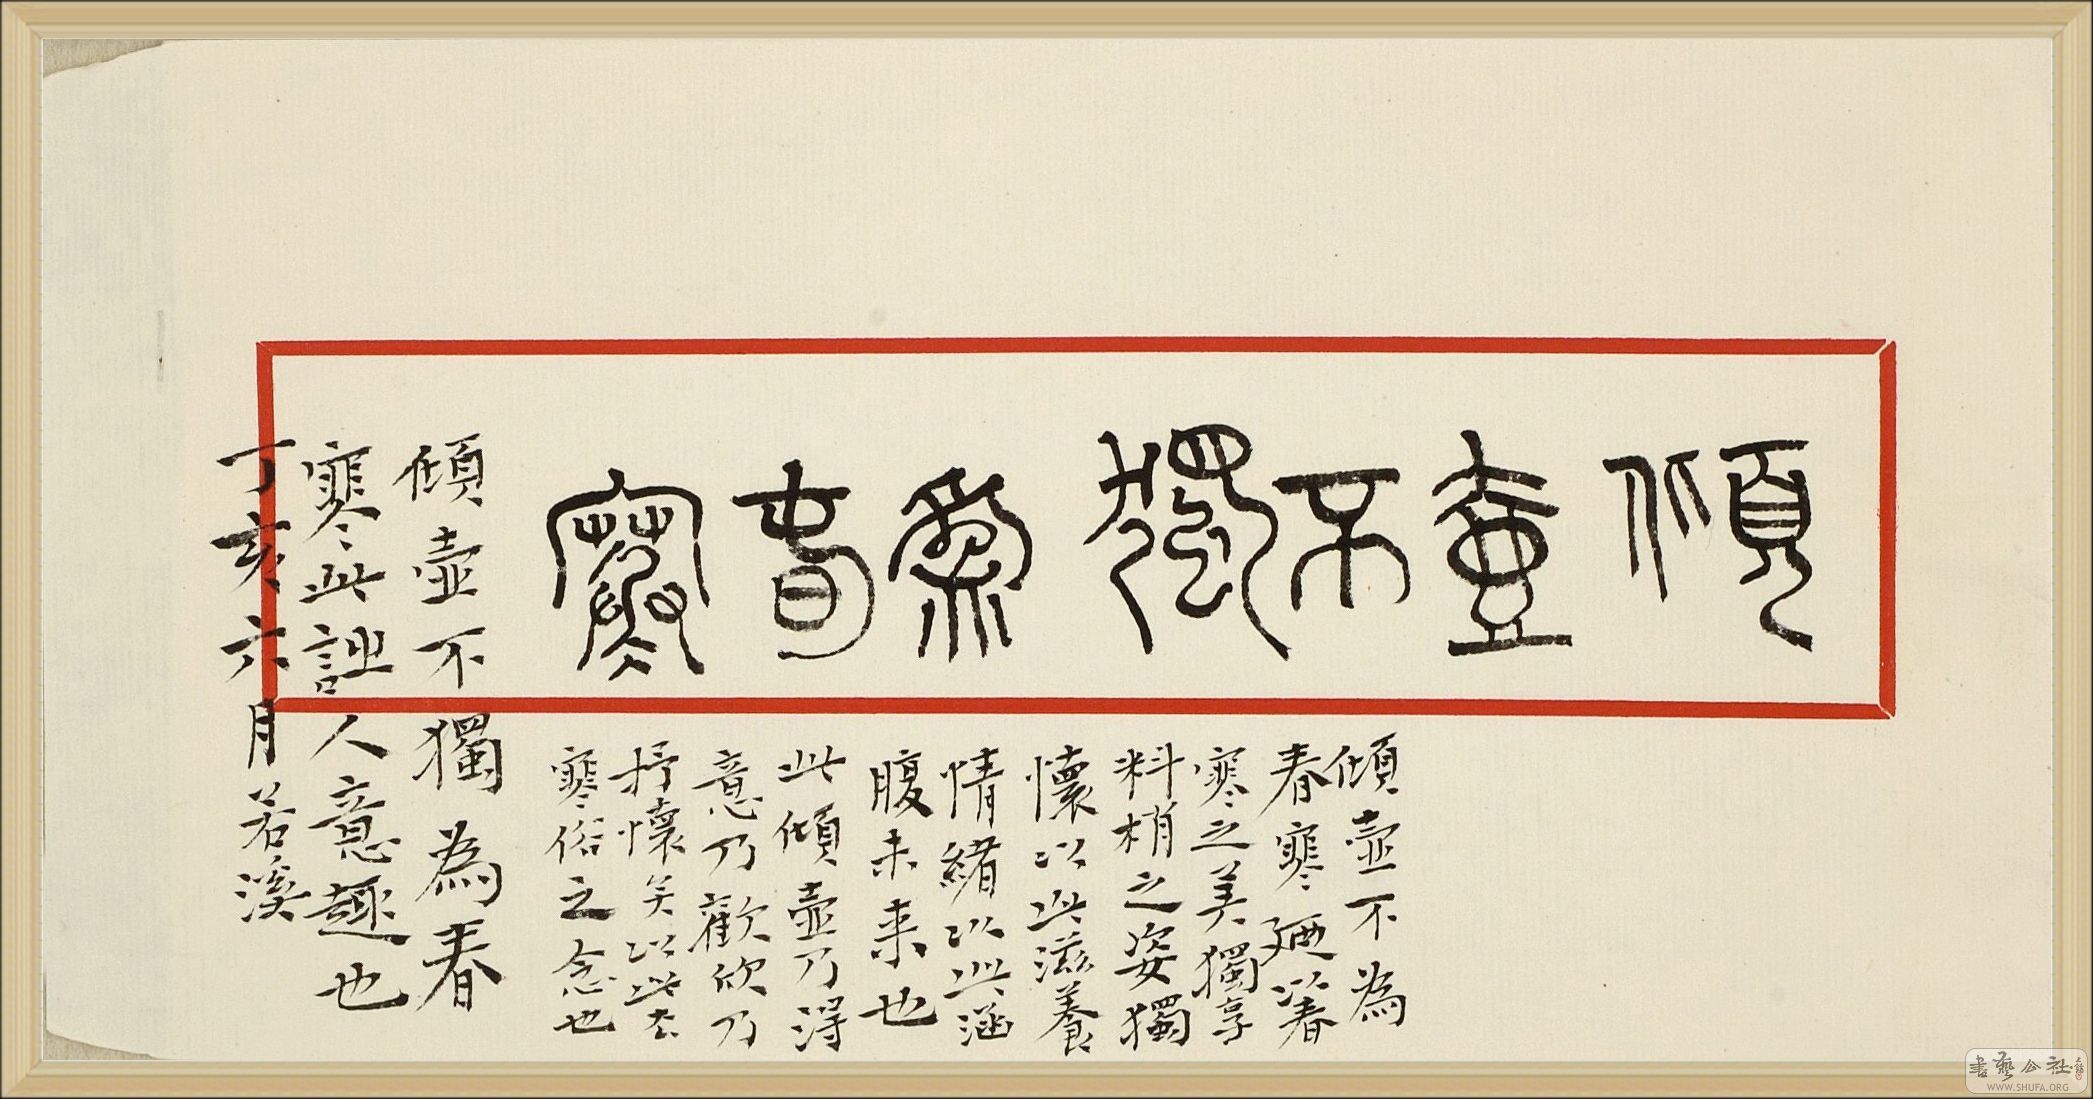 傾壺不獨為春寒
傾壺不為
春寒廼以春
寒之美獨享
料梢之姿獨
懷以此滋養
情緒以此涵
腹未來也
此傾壺乃得
意乃歡欣乃
抒懷矣以此去
寒俗之念也
傾壺不獨為春
寒此誑人意趣也
丁亥六月若溪
書藝公社
WWW.SHUFA.ORG